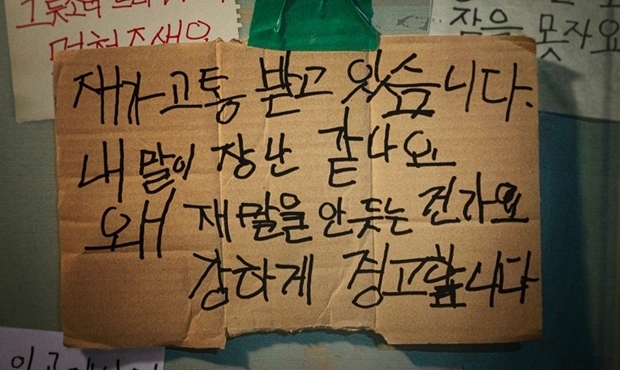 멈춰주세요
잠을 못자요
재가 고통 받고 있습니다.
내 말이 장난 같나요
왜 재 말을 안 듯는 건가요
강하게 경고합니다